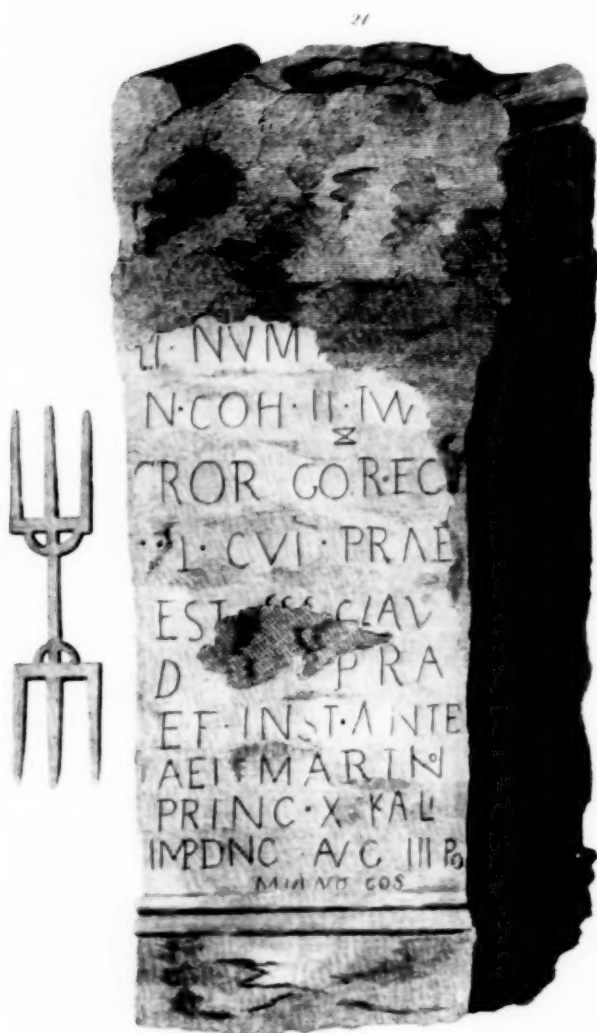 21
NVM
N·COH·II·
ROR GO·R·EC
L·CVI·PRAE
EST CLAV
D PRA
EF·INST·ANTE
AEI MARIN
PRINC·X·KAL
IMPDNC·AVG III Po
COS